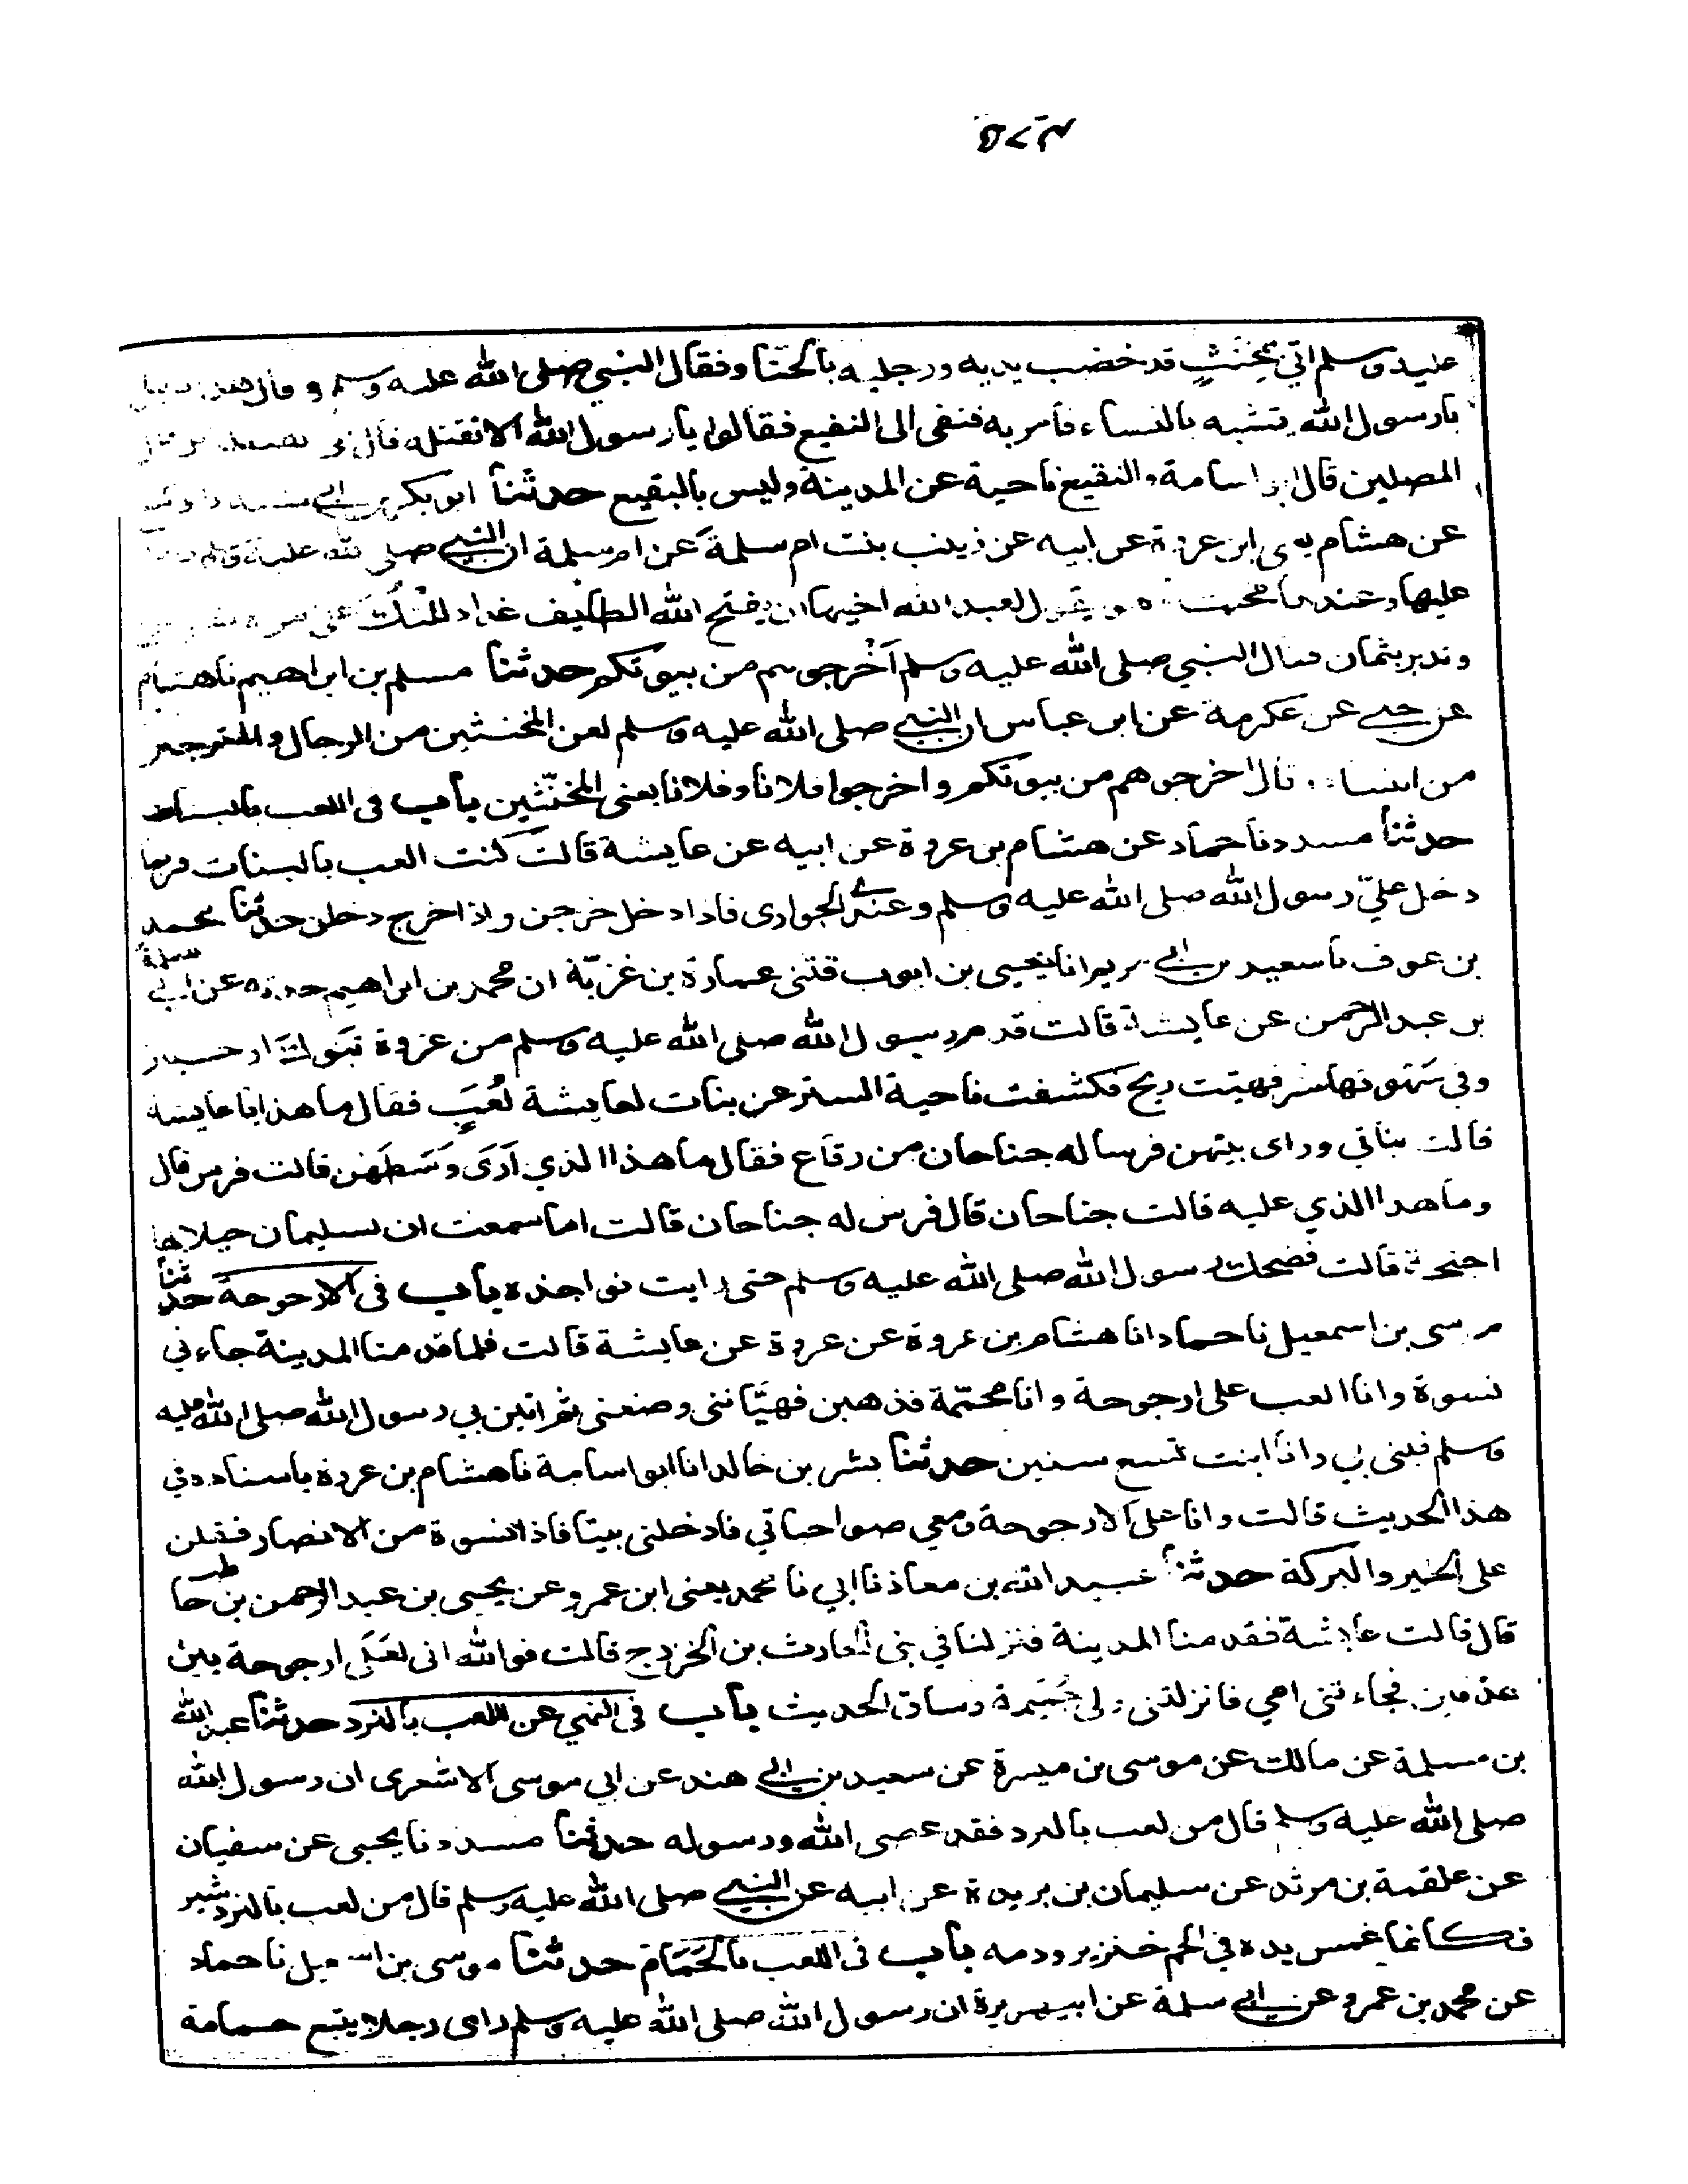 عليه وسلم اتي بمخنث قد خضب يديه ورجليه بالحنا وفقال النبي صلى الله عليه وسلم و
يارسول الله يتشبه بالنساء فأمر به فنفى الى النقيع فقالوا يا رسول الله الا نقتله قال
المصلين قال ابو اسامة والنقيع ناحية عن المدينة وليس بالبقيع حدثنا ابو بكر بن ابي
عن هشام يعنى ابن عروة عن ابيه عن زينب بنت ام سلمة عن ام سلمة ان النبي صلى الله عليه وسلم
عليها وعندها مخنث وهو يقول لعبد الله اخيها ان يفتح الله الطايف غدا دللتك على امرأة
وتدبر بثمان فقال النبي صلى الله عليه وسلم أخرجوهم من بيوتكم حدثنا مسلم بن ابراهيم نا هشام
عن يحيى عن عكرمة عن ابن عباس ان النبي صلى الله عليه وسلم لعن المخنثين من الرجال والمترجلات
من النساء قال اخرجوهم من بيوتكم واخرجوا فلانا وفلانا يعنى المخنثين باب فى اللعب بالبنات
حدثنا مسدد نا حماد عن هشام بن عروة عن ابيه عن عايشة قالت كنت العب بالبنات فربما
دخل عليّ رسول الله صلى الله عليه وسلم وعندى الجوارى فاذا دخل خرجن واذا خرج دخلن حدثنا محمد
بن عوف نا سعيد بن ابي مريم انا يحيى بن ايوب قثنى عمارة بن غزيّة ان محمد بن ابراهيم حدثه عن ابي سلمة
بن عبد الرحمن عن عايشة قالت قدم رسول الله صلى الله عليه وسلم من غزوة تبوك او خيبر
وفي سهوتها ستر فهبت ريح فكشفت ناحية الستر عن بنات لعايشة لعب فقال ما هذا يا عايشة
قالت بناتي وراى بينهن فرسا له جناحان من رقاع فقال ما هذا الذي أرى وسطهن قالت فرس قال
وما هذا الذي عليه قالت جناحان قال فرس له جناحان قالت اما سمعت ان لسليمان خيلا لها
اجنحة قالت فضحك رسول الله صلى الله عليه وسلم حتى رايت نواجذه باب فى الارجوحة حدثنا
موسى بن اسمعيل نا حماد انا هشام بن عروة عن عروة عن عايشة قالت فلما قدمنا المدينة جاءني
نسوة وانا العب على ارجوحة وانا مجمّمة فذهبن فهيّأننى وصنعنى ثم اتين بي رسول الله صلى الله عليه
وسلم فبنى بي وانا ابنت تسع سنين حدثنا بشر بن خالد انا ابو اسامة نا هشام بن عروة باسناده في
هذا الحديث قالت وانا على الارجوحة ومعي صواحباتي فادخلنى بيتا فاذا نسوة من الانصار فقلن
على الخير والبركة حدثنا عبيد الله بن معاذ نا ابي نا محمد يعنى ابن عمرو عن يحيى بن عبد الرحمن بن حاطب
قال قالت عايشة فقدمنا المدينة فنزلنا في بنى الحارث بن الخزرج قالت فوالله انى لعلى ارجوحة بين
عذقين فجاءتنى امي فانزلتنى ولى جميمة وساق الحديث باب فى النهي عن اللعب بالنرد حدثنا عبد الله
بن مسلمة عن مالك عن موسى بن ميسرة عن سعيد بن ابي هند عن ابي موسى الاشعرى ان رسول الله
صلى الله عليه وسلم قال من لعب بالنرد فقد عصى الله ورسوله حدثنا مسدد نا يحيى عن سفيان
عن علقمة بن مرثد عن سليمان بن بريدة عن ابيه عن النبي صلى الله عليه وسلم قال من لعب بالنردشير
فكانما غمس يده في لحم خنزير ودمه باب فى اللعب بالحمام حدثنا موسى بن اسمعيل نا حماد
عن محمد بن عمرو عن ابي سلمة عن ابيهريرة ان رسول الله صلى الله عليه وسلم راى رجلا يتبع حمامة